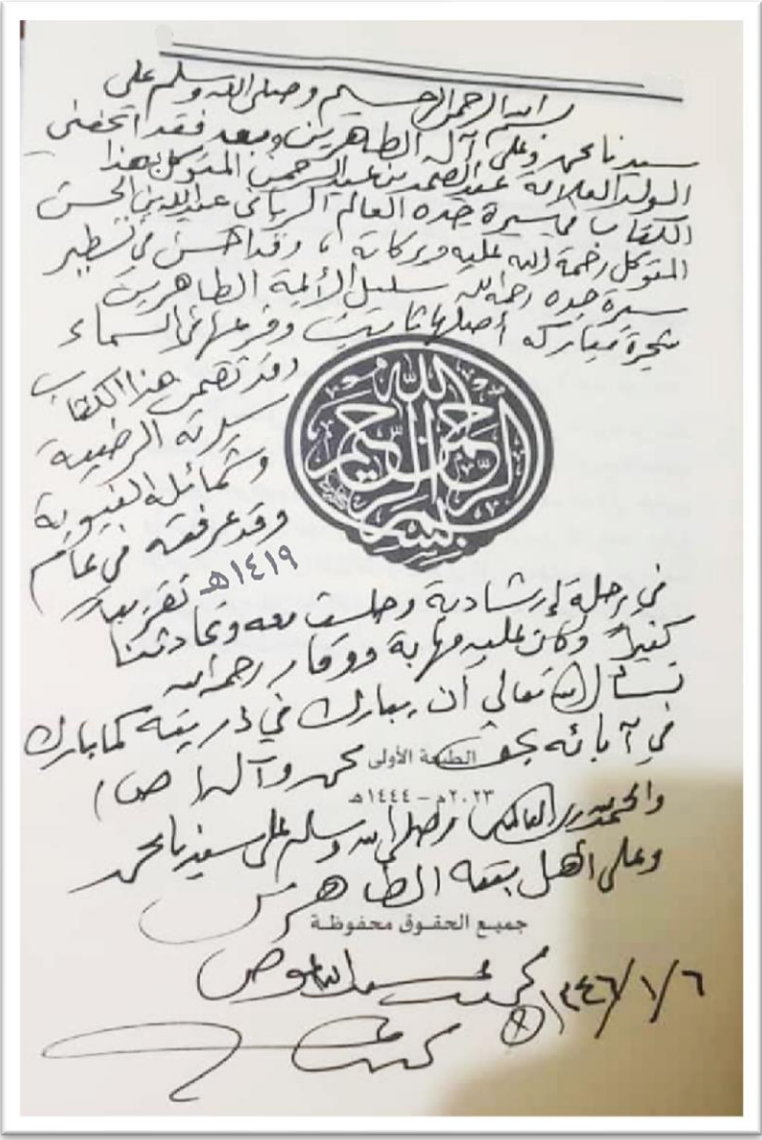 بسم الله الرحمن الرحيم وصلى الله وسلم على
سيدنا محمد وعلى آله الطاهرين وبعد فقد اتحفني
الولد العلامة عبد الصمد بن عبد الرحمن المتوكل بهذا
الكتاب في سيرة جده العالم الرباني عبد الله بن الحسن
المتوكل رحمة الله عليه وبركاته، وقد احسن في تسطير
سيرة جده رحمه الله سليل الأئمة الطاهرين
شجرة مباركه أصلها ثابت وفرعها في السماء
وقد تضمن هذا الكتاب
سيرته الرضية
وشمائله النبوية
وقد عرفته في عام
١٤١٩هـ تقريبا
بسم الله الرحمن الرحيم
في رحلة إرشادية وجلست معه وتحادثنا
كثيراً وكان عليه مهابة ووقار رحمه الله
نسأل الله تعالى أن يبارك في ذريته كما بارك
في آبائه بحق محمد وآله (ص)
الطبعة الأولى
٢٠٢٣م – ١٤٤٤هـ
والحمد لله رب العالمين وصلى الله وسلم على سيدنا محمد
وعلى أهل بيته الطاهرين
جميع الحقوق محفوظة
محمد عبد الله عوض
٦/١/١٤٤٦